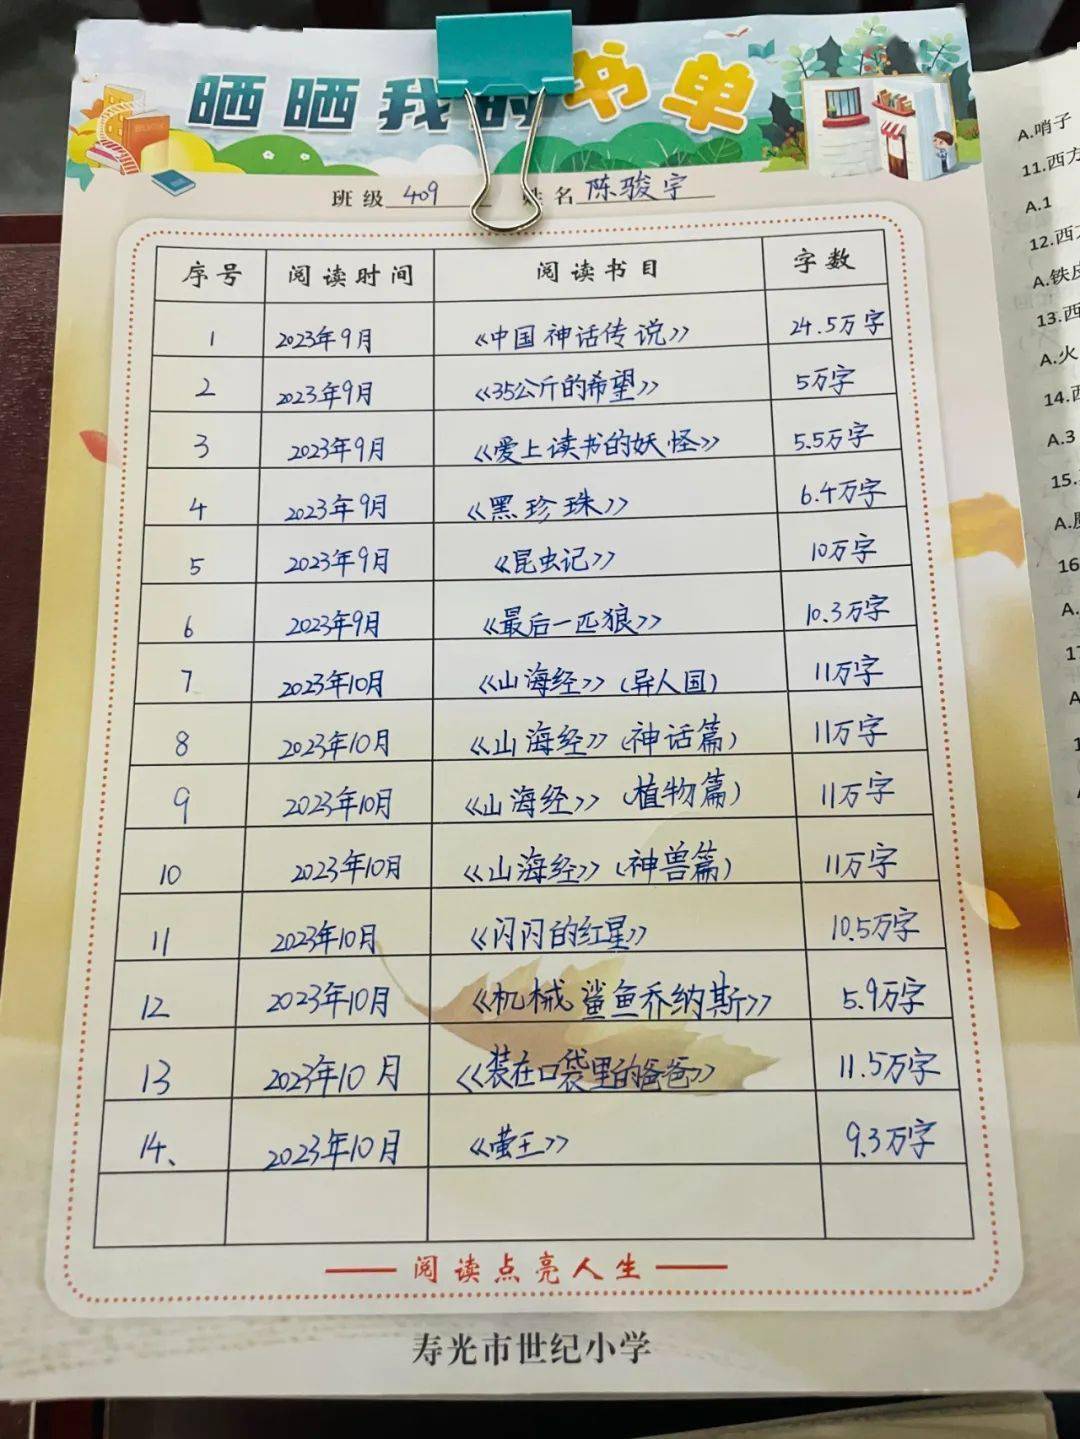 晒晒我的书单
班级 409 姓名 陈骏宇
序号 阅读时间 阅读书目 字数
1 2023年9月 《中国神话传说》 24.5万字
2 2023年9月 《35公斤的希望》 5万字
3 2023年9月 《爱上读书的妖怪》 5.5万字
4 2023年9月 《黑珍珠》 6.4万字
5 2023年9月 《昆虫记》 10万字
6 2023年9月 《最后一匹狼》 10.3万字
7 2023年10月 《山海经》(异人国) 11万字
8 2023年10月 《山海经》(神话篇) 11万字
9 2023年10月 《山海经》(植物篇) 11万字
10 2023年10月 《山海经》(神兽篇) 11万字
11 2023年10月 《闪闪的红星》 10.5万字
12 2023年10月 《机械鲨鱼乔纳斯》 5.9万字
13 2023年10月 《装在口袋里的爸爸》 11.5万字
14、 2023年10月 《萤王》 9.3万字
阅读点亮人生
寿光市世纪小学
A.哨子
11.西方
A.1
12.西方
A.铁皮
13.西
A.火
14.西
A.3
15.
A.
16
A.
17
A